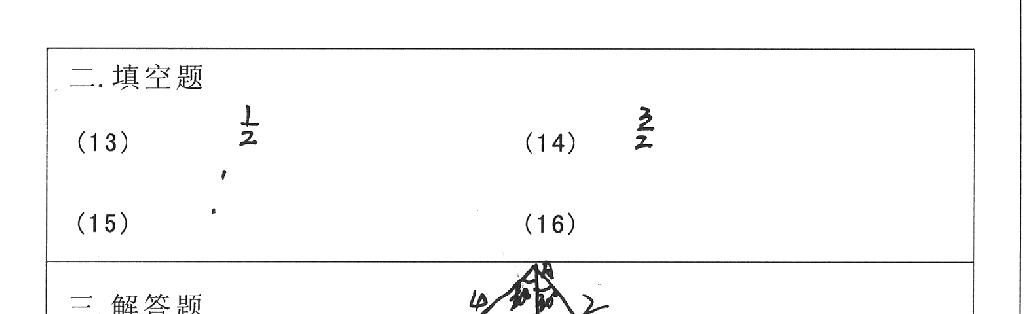 二.填空题
(13) 1/2 (14) 3/2
(15) (16)
A
三.解答题 4 30° 30° 2